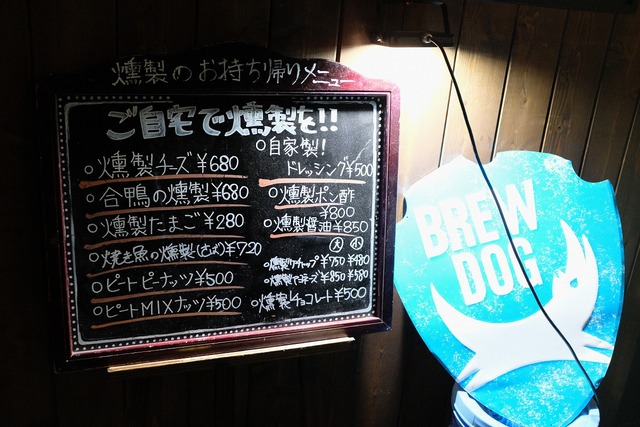 燻製のお持ち帰りメニュー
ご自宅で燻製を!!
○燻製チーズ¥680
○合鴨の燻製¥680
○燻製たまご¥280
○焼き魚の燻製(さば)¥720
○ピートピーナッツ¥500
○ピートMIXナッツ¥500
○自家製!
ドレッシング¥500
○燻製ポン酢
¥800
○燻製醤油¥850
大 小
○燻製ケチャップ¥750 ¥480
○燻製マヨネーズ¥850 ¥580
○燻製チョコレート¥500
BREW
DOG